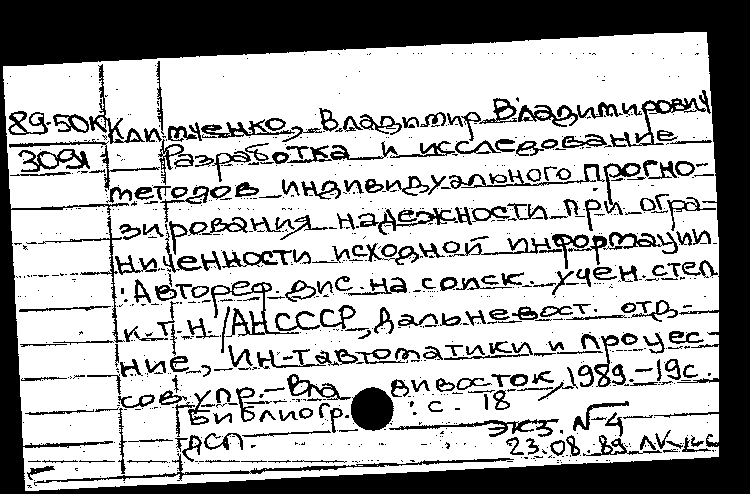 89-50К Климченко, Владимир Владимирович
3091 Разработка и исследование
методов индивидуального прогно-
зирования надежности при огра-
ниченности исходной информации
: Автореф. дис. на соиск. учен. степ
к.т.н. /АН СССР, Дальневост. отд-
ние, Ин-т автоматики и процес-
сов упр. - Вла дивосток, 1989. - 19 с.
Библиогр. : с. 18
ДСП. экз. №4
23.08.89